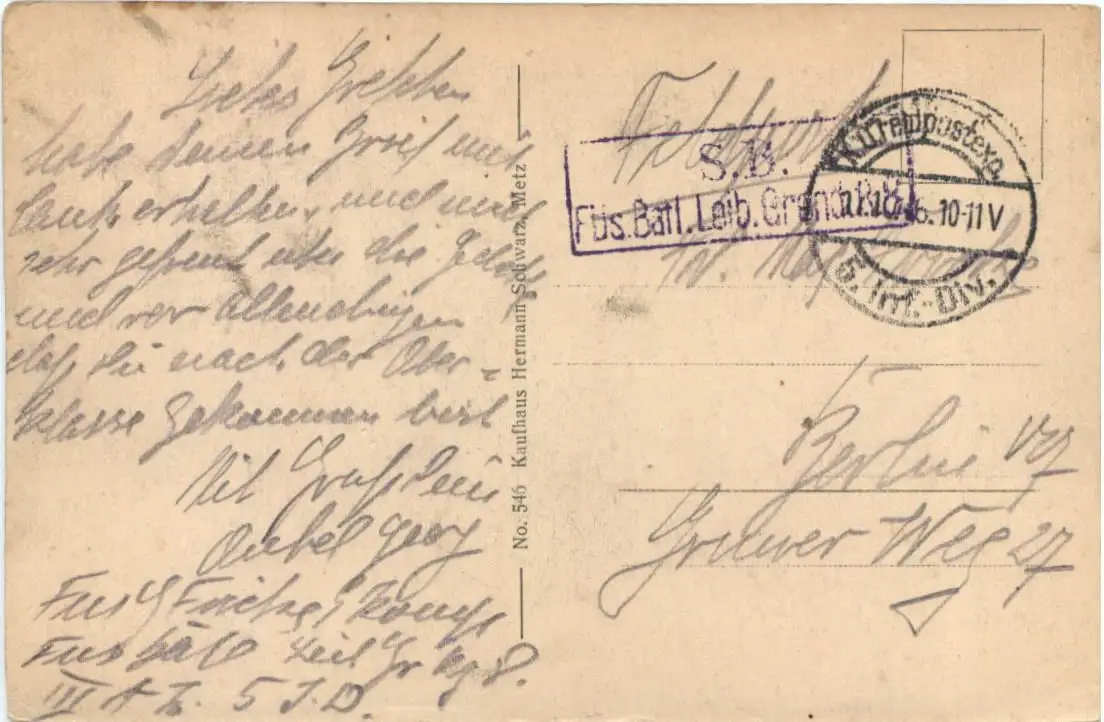 Liebes Gretchen
habe deinen Brief mit
Dank erhalten, und mich
sehr gefreut über die Gelobe
und vor Allendingen
daß Du nach der Ober-
klasse gekommen bist
Mit Gruß Dein
Onkel Georg
Füs Komp
Füs Batl Leib Gr Rg 8.
III A K. 5 I. D.
No. 546 Kaufhaus Hermann Schwarz, Metz
Feldpost
S.B.
Füs. Batl. Leib. Grend. R. 8.
K.D. Feldpostexp.
10-11 V
5. Inf.-Div.
Berlin
Grüner Weg 27